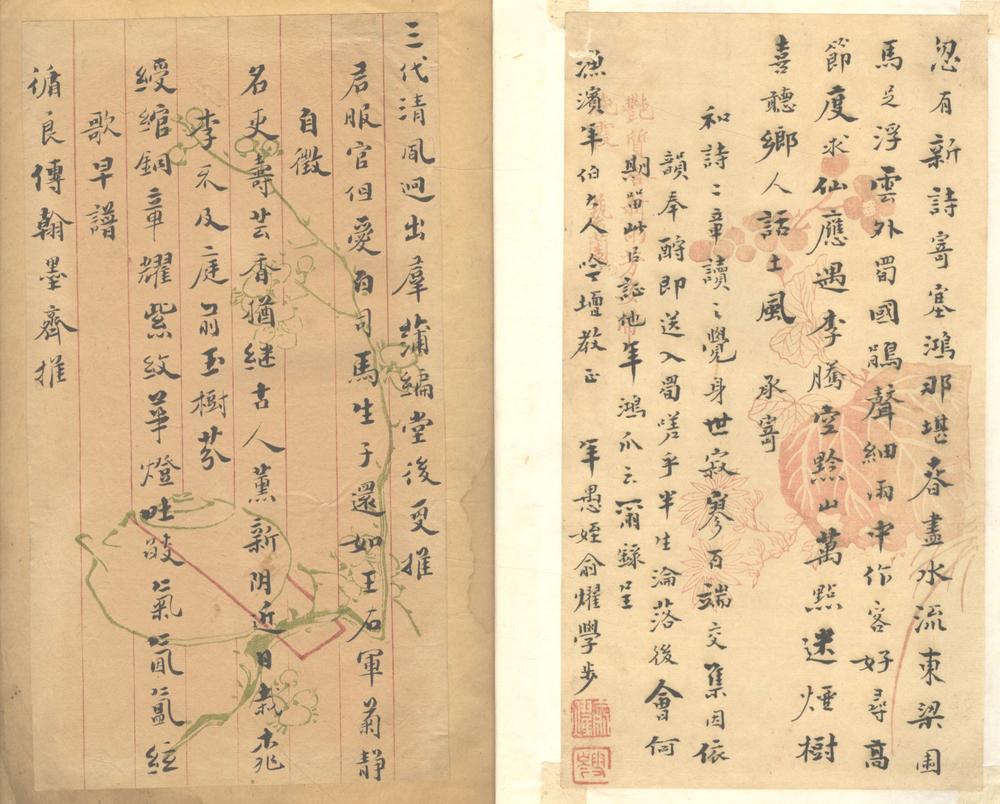 忽有新詩寄塞鴻那堪春盡水流東梁園
馬足浮雲外蜀國鵑聲細雨中作客好尋高
節度求仙應遇李騰空黔山萬點迷煙樹
喜聽鄉人話土風 承寄
和詩二章讀之覺身世寂寥百端交集因依
韻奉酧即送入蜀嗟乎半生淪落後會何
期留此以証他年鴻爪云爾錄呈
濂濱年伯大人吟壇教正 年愚姪俞燿學步
三代清風迥出羣蒲編堂後更推
君服官但愛白司馬生子還如王右軍菊靜
自徵
名吏壽芸香猶継古人薰新阴近日栽桃
李不及庭前玉樹芬
綬綰銅章耀紫紋華燈吐燄氣氤氳絃
歌早譜
循良傳翰墨齊推